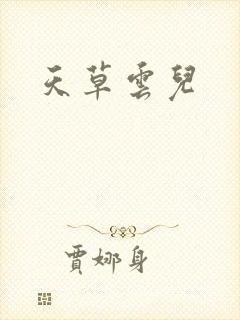 天草雲兒
賈娜身